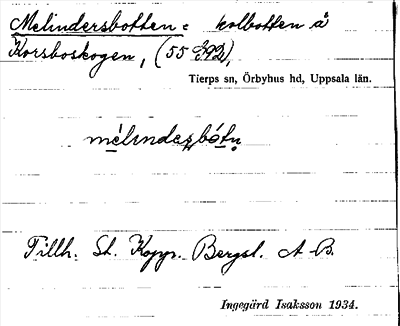 Melindersbotten = kolbotten å
Korsboskogen, (55 J 92),
Tierps sn, Örbyhus hd, Uppsala län.
Tillh. St. Koppr. Bergsl. A-B.
Ingegärd Isaksson 1934.